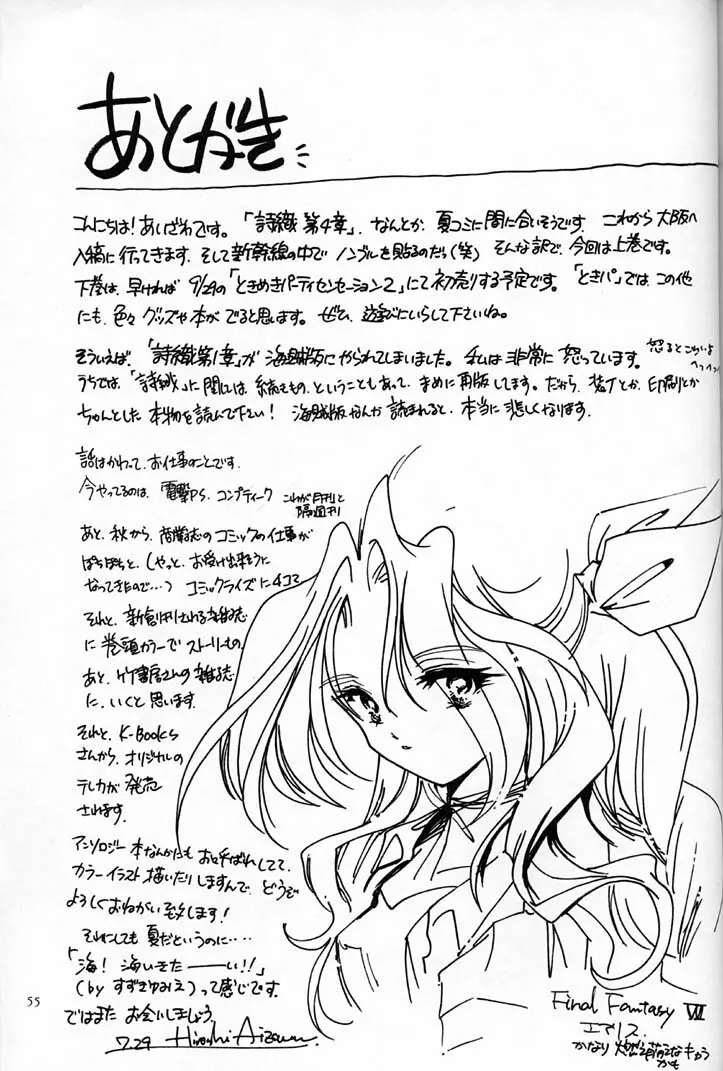 あとがき
こんにちは！あいざわです。「詩織 第4章」、なんとか、夏コミに間に合いそうです。これから大阪へ
入稿に行ってきます。そして新幹線の中でノンブルを貼るのだぅ(笑) そんな訳で、今回は上巻です。
下巻は、早ければ 9/29の「ときめきパーティセンセーション2」にて初売りする予定です。「ときパ」では、この他
にも、色々グッズや本がでると思います。ぜひ、遊びにいらして下さいね。
そういえば、「詩織第1章」が海賊版にやられてしまいました。私は非常に怒っています。
怒るとこわいよ
へっへっ
うちでは、「詩織」に関しては、続きもの、ということもあって、まめに再版します。だから、装丁とか、印刷とか
ちゃんとした本物を読んで下さい！ 海賊版なんか読まれると、本当に悲しくなります。
話はかわって、お仕事のことです。
今やってるのは、電撃PS、コンプティーク
これが月刊と
隔週刊
あと、秋から、商業誌のコミックの仕事が
ぼちぼちと、(やっと、お受け出来そうに
なってきたので…) コミックライズに4コマ
それと、新創刊される雑誌
に巻頭カラーでストーリーもの。
あと、竹書房さんの雑誌
に、いくと思います。
それと、K-BOOKS
さんから、オリジナルの
テレカが発売
されます。
アンソロジー本なんかにもお呼ばれしてて、
カラーイラスト描いたりしますんで、どうぞ
よろしくおねがい致します！
それにしても夏だというのに‥‥
「海！海いきたーーい!!」
(by すずきゆみえ)って感じです。
ではまた お会いしましょう。
7.29 Hiroshi Aizawa.
Final Fantasy VII
エアリス。
かなり 萌えなキャラ
かも
55